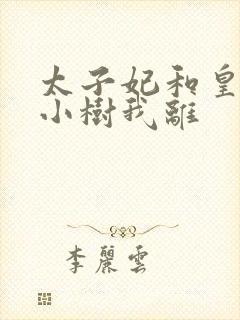 太子妃和皇
小樹我離
李麗雲